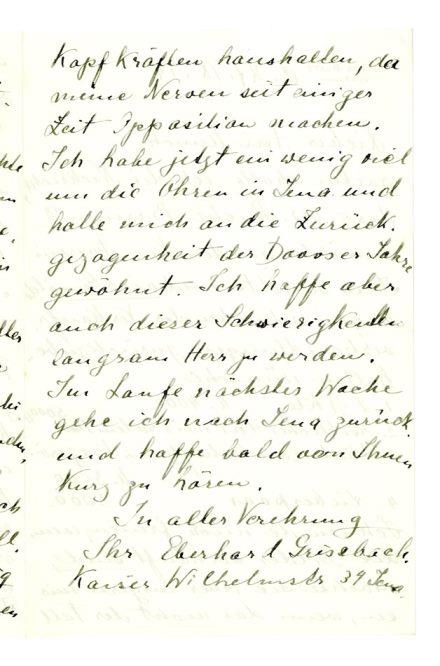 Kopf Kräften haushalten, da
meine Nerven seit einiger
Zeit Opposition machen.
Ich habe jetzt ein wenig viel
um die Ohren in Jena und
hatte mich an die Zurück-
gezogenheit der Davoser Jahre
gewöhnt. Ich hoffe aber
auch dieser Schwierigkeiten
langsam Herr zu werden.
Im Laufe nächster Woche
gehe ich nach Jena zurück
und hoffe bald von Ihnen
kurz zu hören.
In aller Verehrung
Ihr Eberhard Grisebach.
Kaiser Wilhelmstr 34 Jena.